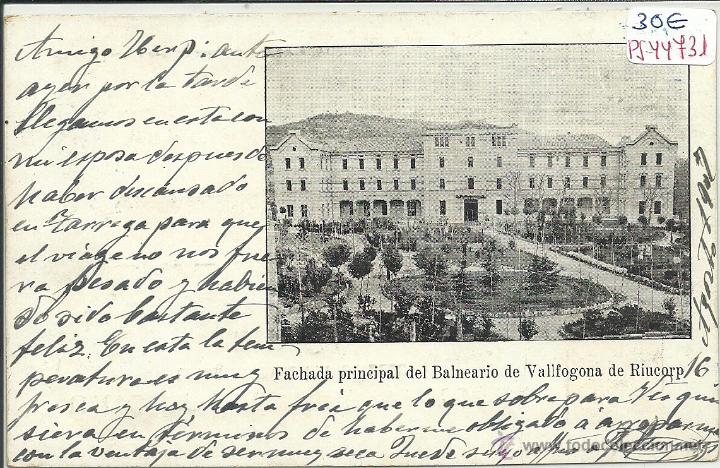 30€
PS-44731
Amigo Henp: ante
ayer por la tarde
llegamos en esta con
mi esposa despues de
haber descansado
en Tarrega para que
el viage no nos fue
ra pesado y habien
do sido bastante
feliz. En esta la tem
peratura es muy
fresca y hay hasta fria que lo que sobra para
siera en términos de haberme obligado á
con la ventaja de ser muy seca
Fachada principal del Balneario de Vallfogona de Riucorp
16
Agosto
todocoleccion.net